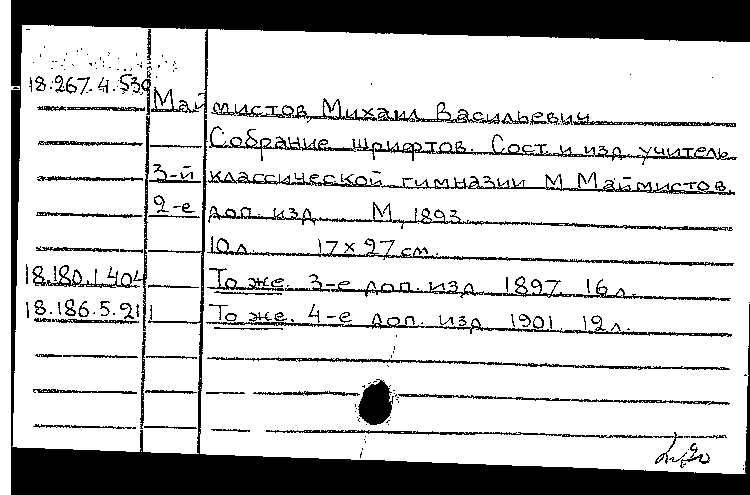 18.267.4.530
Маймистов, Михаил Васильевич
Собрание шрифтов. Сост. и изд. учитель
3-й классической гимназии М. Маймистов.
2-е доп. изд. М., 1893
10 л. 17 x 27 см.
18.180.1.404 То же. 3-е доп. изд. 1897. 16 л.
18.186.5.211 То же. 4-е доп. изд. 1901. 12 л.